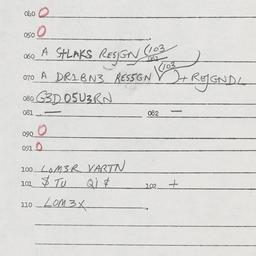 060 O
050 O
060 A STLAKS RESJGN (103
070 A DR1BN3 RESSGN (103) + REJGNDL
080 G3D05U3RN
081 — 082 —
090 O
091 O
100 LOM3R VARTN
101 $ TU Q1 $ 102 +
110 LOM3X